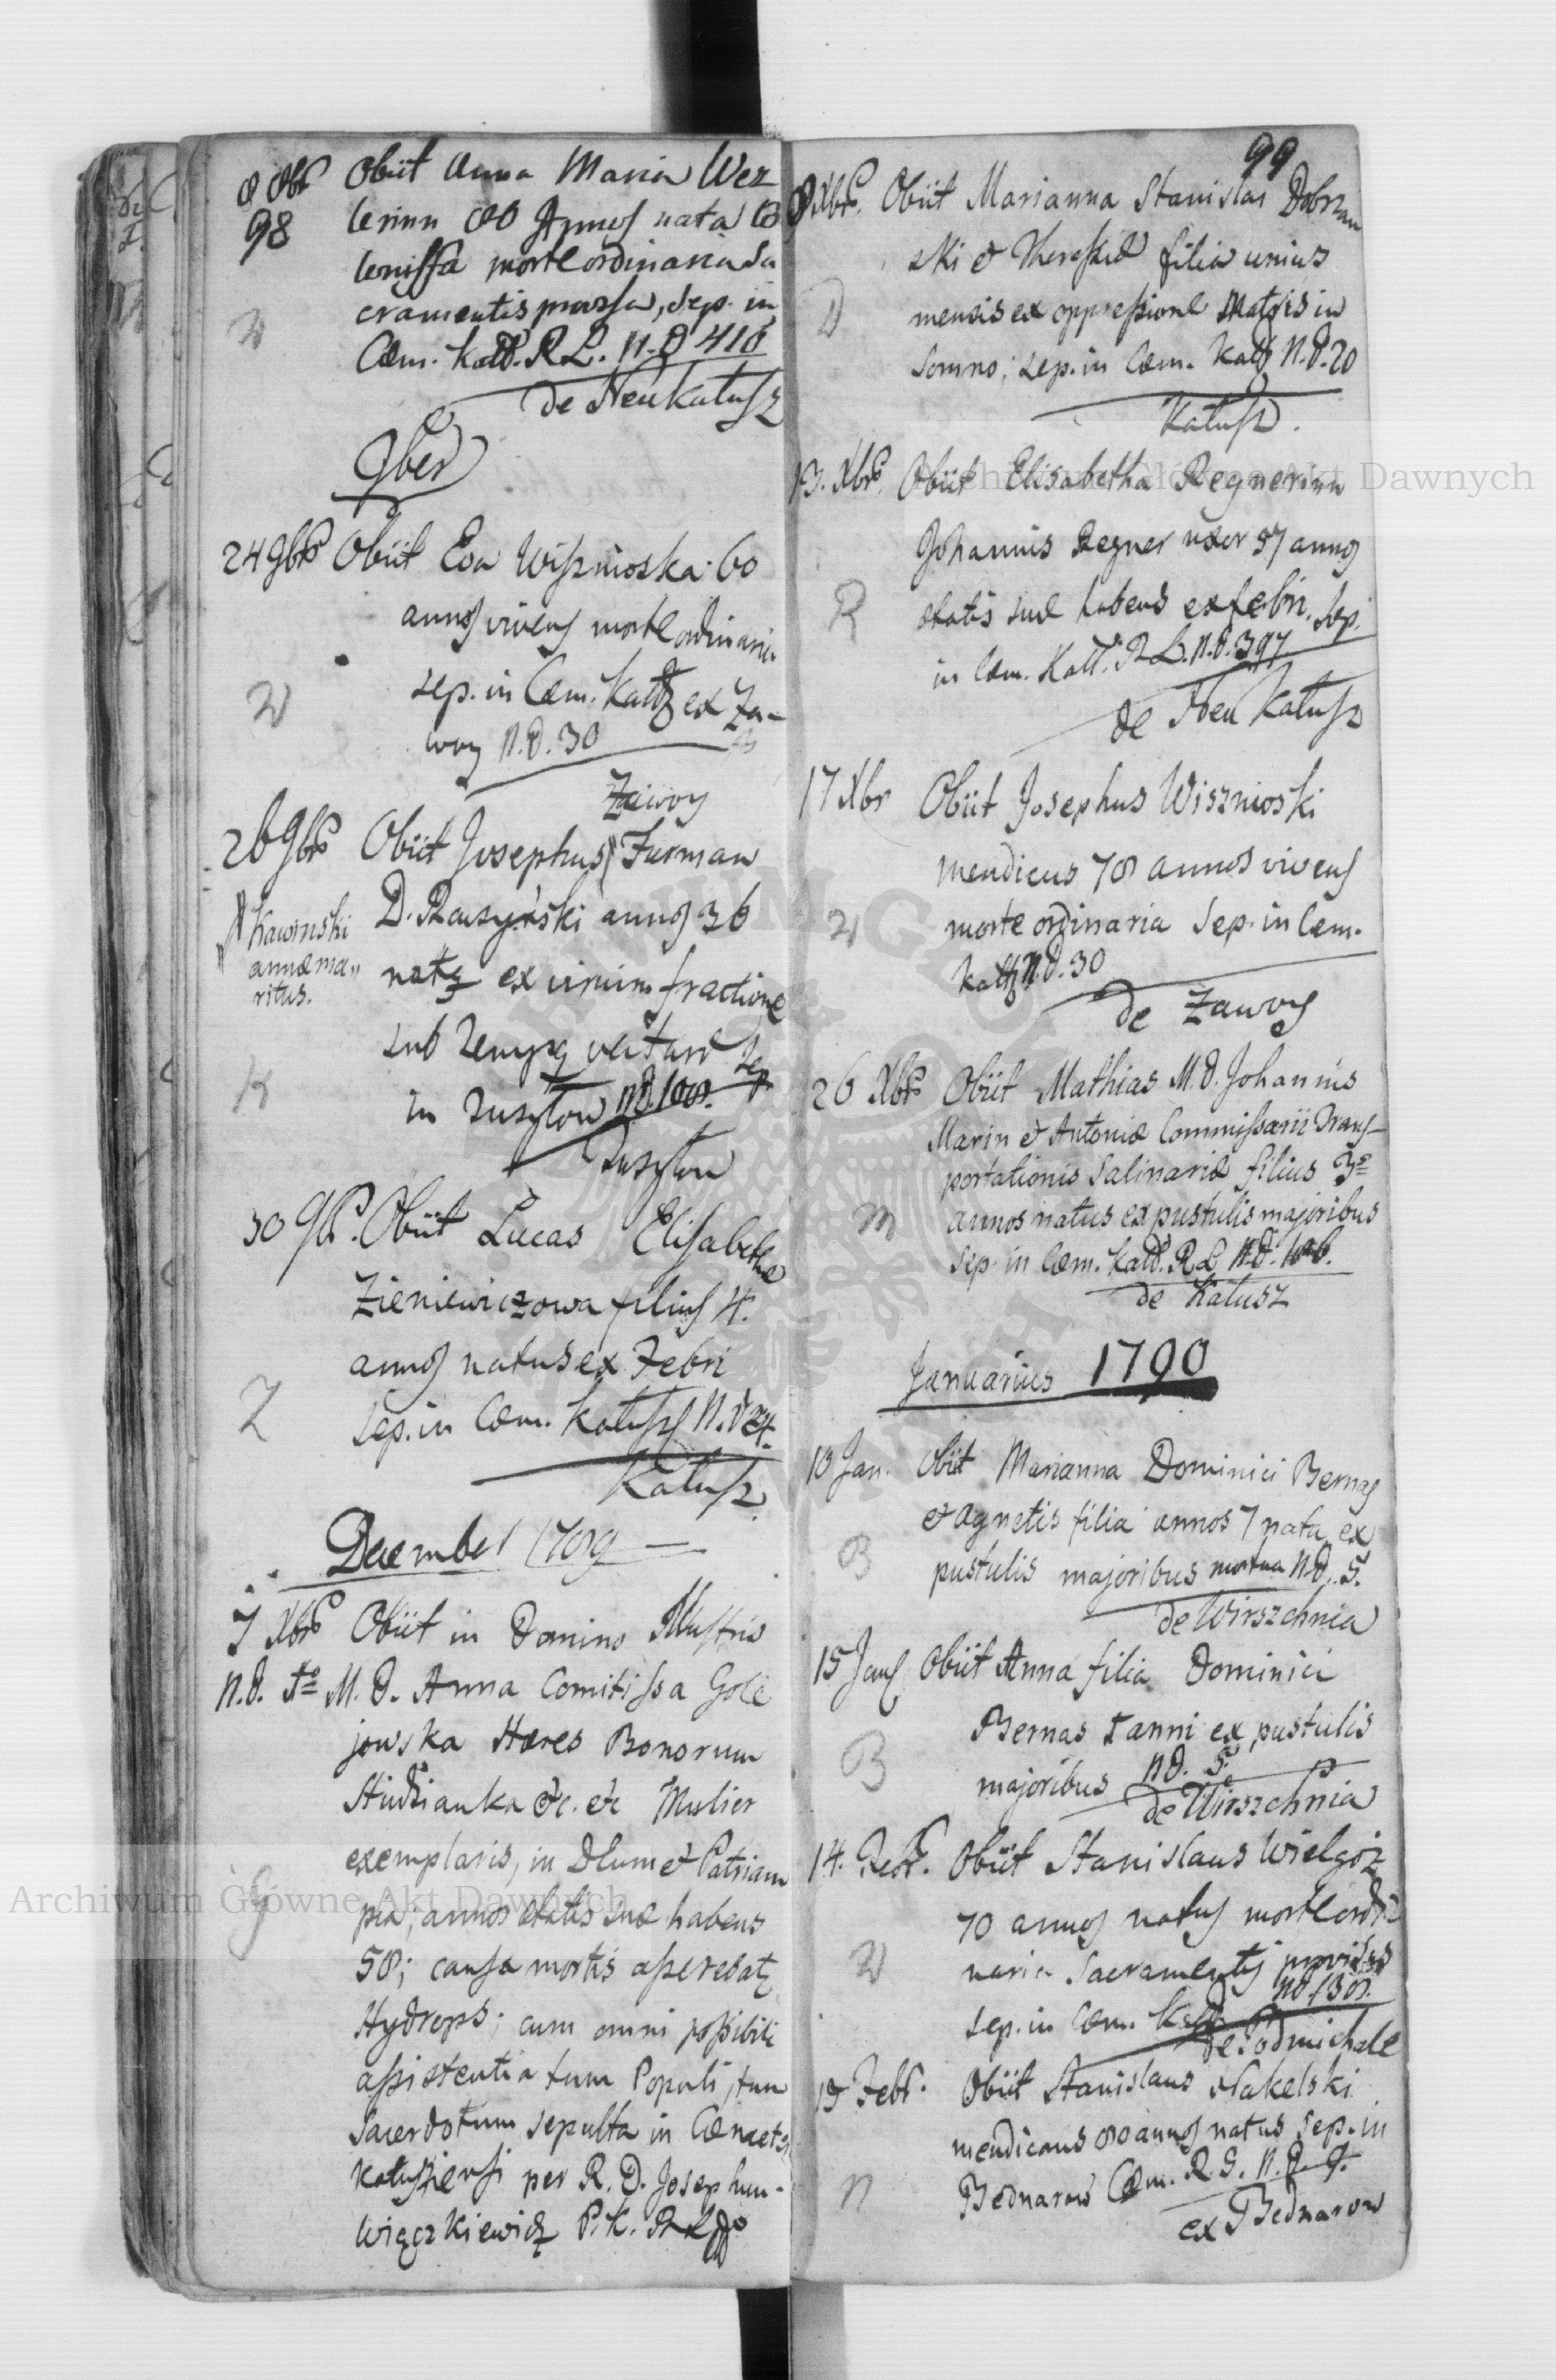 8 8br
98
Obiit Anna Maria Wez
lerinn 80 Annos nata Co
lonissa morte ordinaria Sa
cramentis provisa, sep. in
Cæm. Kałł. R L. N. D 416
de Neukałusz
W
9ber
24 9bris Obiit Eva Wisznioska 60
annos vivens morte ordinaria
sep. in Cæm. Kałł ex Za-
woy N.D. 30
Zawoy
W
26 9bris Obiit Josephus Furman
Kawinski
annæ ma
ritus.
D. Raszyński annos 36
natq ex crurium fractione
sub
in N.D. 108.
K
30 9br. Obiit Lucas Elisabethæ
Zieniewiczowa filius 4.
annos natus ex Febri
sep. in Cæm. Kałuszs N.D 24.
Kałusz
Z
December 1789
7 Xbris Obiit in Domino Illustris
N.D. 1o M. D. Anna Comitissa Gole
jowska Hæres Bonorum
Studzianka &c. &c Mulier
exemplaris, in Dlum & Patriam
pia, annos ætatis suæ habens
58; causa mortis asserebatq
Hydrops; cum omni possibili
assistentia tum Populi, tum
Sacerdotum sepulta in Cœmet
Kałusziensi per R. D. Josephum
Wiączkiewicz P.K. R L
G
99
8 Xbris. Obiit Marianna Stanislai Dobrzan
ski & Theressiæ filia unius
mensis ex oppressione Matris in
somno; sep. in Cæm. Kałł N.D. 20
Kałusz.
D
13. Xbris. Obiit Elisabetha Regnerinn
Johannis Regner uxor 57 annos
ætatis suæ habens ex febri. Sep.
in Cæm. Kałł. R L. N.D. 397
de Neu Kałusz
R
17 Xbr Obiit Josephus Wisznioski
mendicus 78 annos vivens
morte ordinaria Sep. in Cæm.
Kałł N.D. 30
de Zawoy
W
26 Xbris Obiit Mathias M.D. Johannis
Marin & Antoniæ Commissarii Trans-
portationis Salinariæ filius 3o
annos natus ex pustulis majoribus
sep. in Cæm. Kałł. R L N.D. 106.
de Kałusz
M
Januarius 1790
10 Jan. Obiit Marianna Dominici Bernas
& Agnetis filia annos 7 nata ex
pustulis majoribus mortua N.D. 5.
de Wirszchnia
B
15 Jans Obiit Anna filia Dominici
Bernas 1 anni ex pustulis
majoribus N.D. 5.
de Wirszchnia
B
14. Febr. Obiit Stanislaus Wielgoż
70 annos natus morte ordi
naria Sacramentis provisus
sep. in Cæm. Kałł N.D. 138.
de Podmichale
W
19 Febr. Obiit Stanislaus Nakelski
mendicans 80 annos natus sep. in
Bednarow Cæm. R. G. N. D. 9.
ex Bednarow
N
Archiwum Główne Akt Dawnych
Archiwum Główne Akt Dawnych